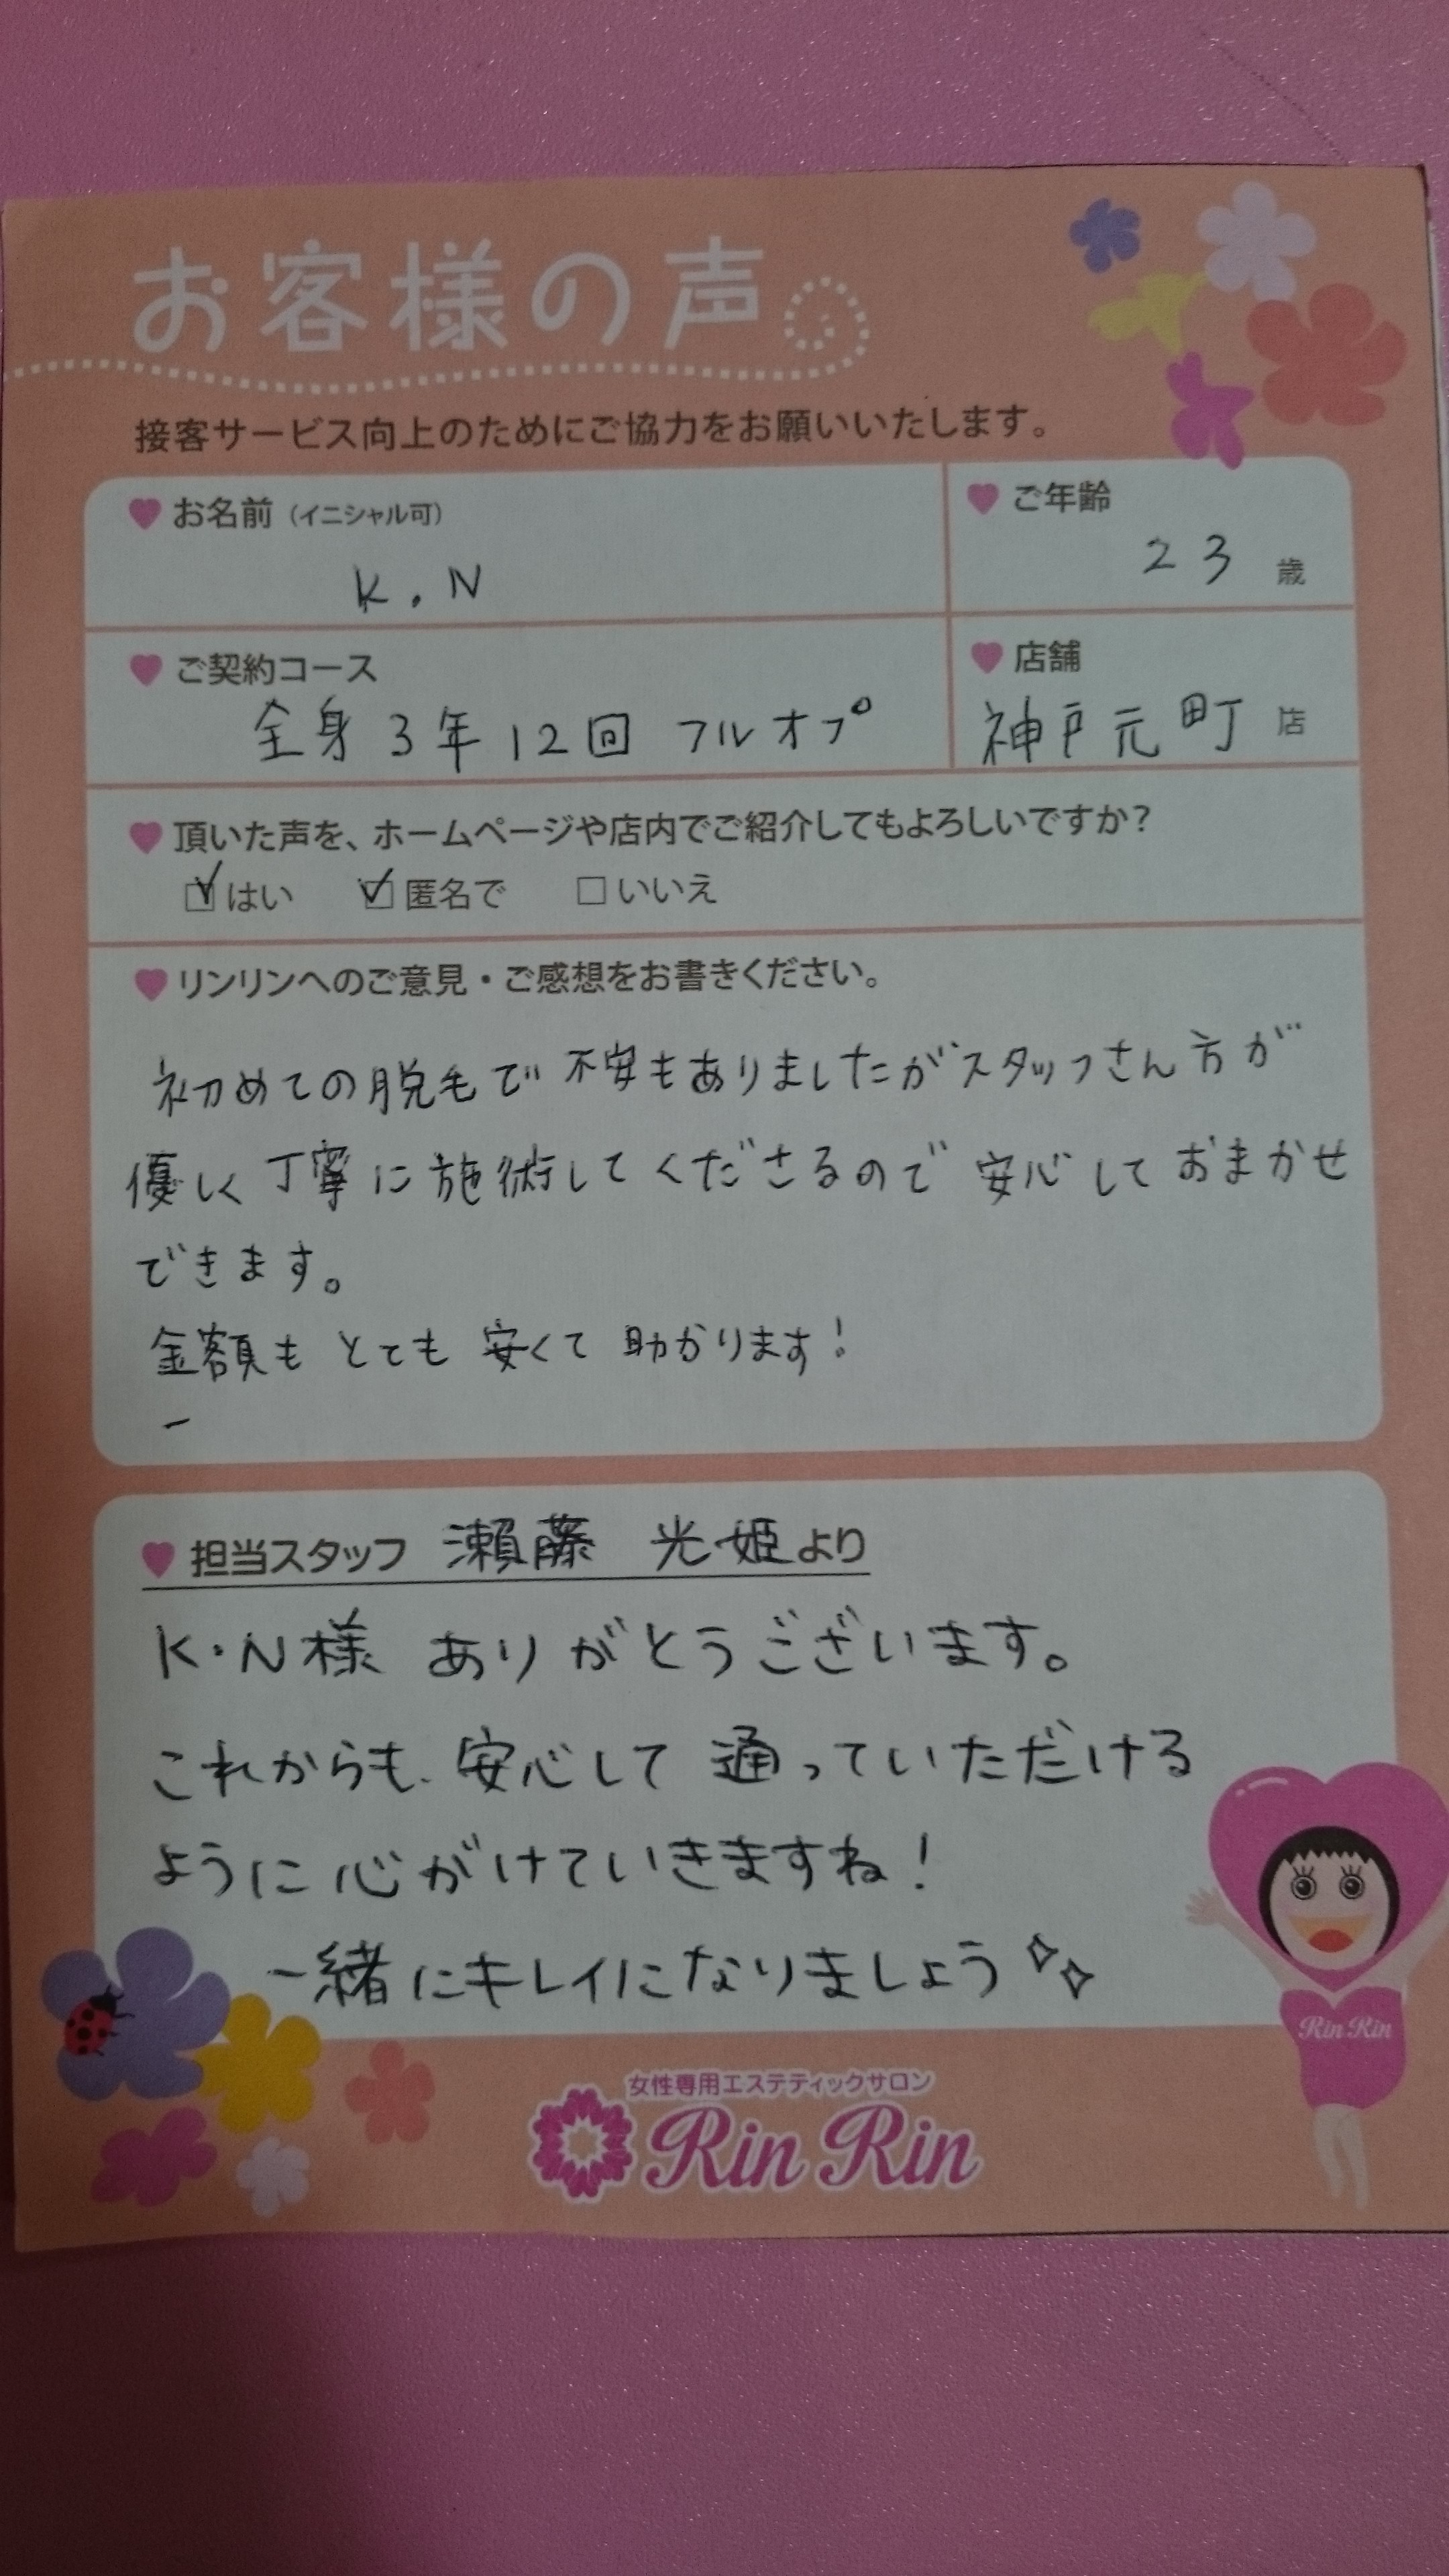 お客様の声
接客サービス向上のためにご協力をお願いいたします。
お名前（イニシャル可）
K.N
ご年齢
23 歳
ご契約コース
全身3年12回 フルオプ
店舗
神戸元町 店
頂いた声を、ホームページや店内でご紹介してもよろしいですか？
はい 匿名で いいえ
リンリンへのご意見・ご感想をお書きください。
初めての脱毛で不安もありましたがスタッフさん方が
優しく丁寧に施術してくださるので安心しておまかせ
できます。
金額もとても安くて助かります!
担当スタッフ 瀬藤 光姫より
K・N様 ありがとうございます。
これからも、安心して通っていただける
ように心がけていきますね!
一緒にキレイになりましょう
Rin Rin
女性専用エステティックサロン
Rin Rin